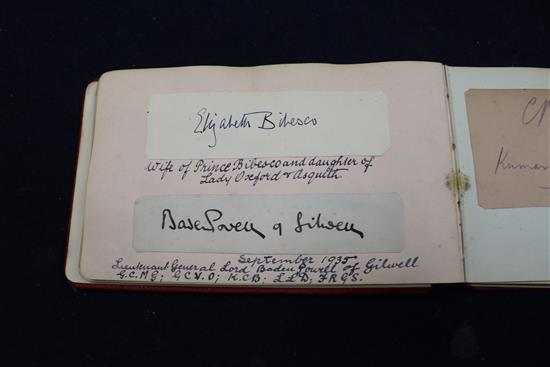 Elizabeth Bibesco
Wife of Prince Bibesco and daughter of
Lady Oxford & Asquith.
Baden Powell of Gilwell
September 1935
Lieutenant General Lord Baden Powell of Gilwell
G.C.M.G; G.C.V.O; K.C.B; L.L.D; F.R.G.S.
Kumar